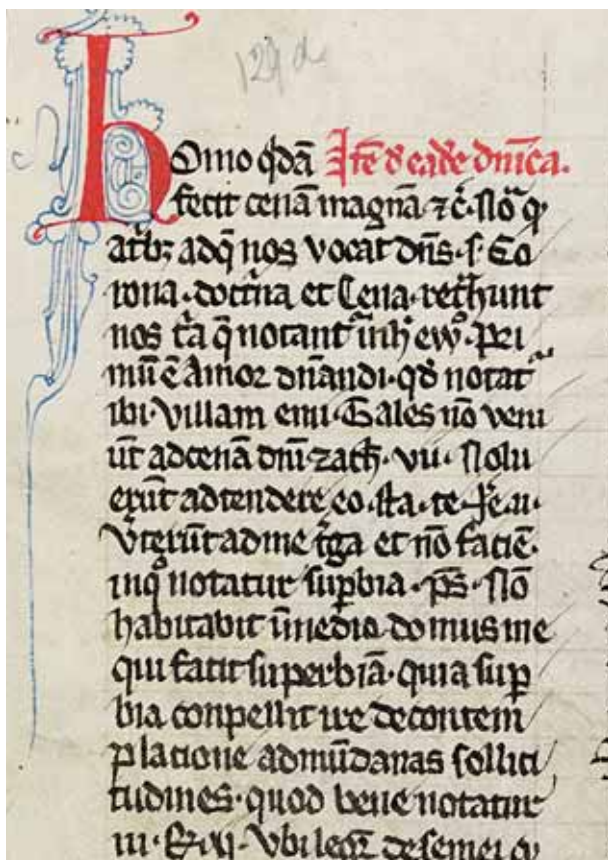 129 d
homo qdã Itẽ ð eadẽ dñica.
fecit cenã magnã ⁊c̃. Nõ q
adq̃ nos vocat dñs. s. Co
rona. doctͥna et Cena. ret͛hunt
nos t͛a q̃ notantᷣ inh̾ ewͦ. Pri
mũ ẽ Amor dñandi. qð notatᷣ
ibi. villam emi. Gales nõ veni
ũt adcenã dñi. zach̃. vii. Nolu
erũt adtendere
v̾terũt adme t̾ga et nõ faciẽ.
inqͦ notatur suꝑbia. p̃s. Nõ
habitabit ĩmedio domus me
qui facit superbiã. quia suꝑ
bia conpellit ire decontem
placione admũdanas sollici
tudines. quod bene notatur
iii. Rͤ. ii. Vbi leg̃r de semei